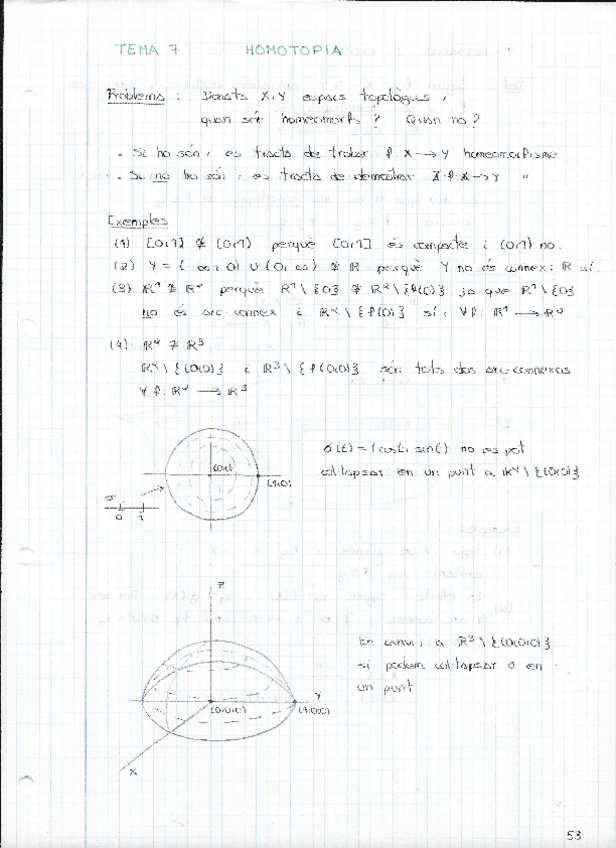 TEMA 7 HOMOTOPIA
Problema : Donats X, Y espais topològics,
quan són homeomorfs? Quan no?
. Si ho són, es tracta de trobar f: X → Y homeomorfisme
. Si no ho són, es tracta de demostrar ∄ f: X → Y "
Exemples
(1) [0,1] ≇ (0,1) perquè [0,1] és compacte i (0,1) no.
(2) Y = (-∞, 0) ∪ (0, ∞) ≇ ℝ perquè Y no és connex i ℝ sí.
(3) ℝ¹ ≇ ℝ² perquè ℝ¹ \ {0} ≇ ℝ² \ {f(0)} ja que ℝ¹ \ {0}
no és arc-connex i ℝ² \ {f(0)} sí, ∀ f: ℝ¹ → ℝ²
(4) ℝ² ≇ ℝ³
ℝ² \ {(0,0)} i ℝ³ \ {f(0,0)} són tots dos arc-connexos
∀ f: ℝ² → ℝ³
σ(t) = (cos t, sin t) no es pot
col·lapsar en un punt a ℝ² \ {(0,0)}
(0,0)
(1,0)
σ
0 1
Z
En canvi, a ℝ³ \ {(0,0,0)}
sí podem col·lapsar σ en
un punt
Y
(0,0,0)
(1,0,0)
X
53